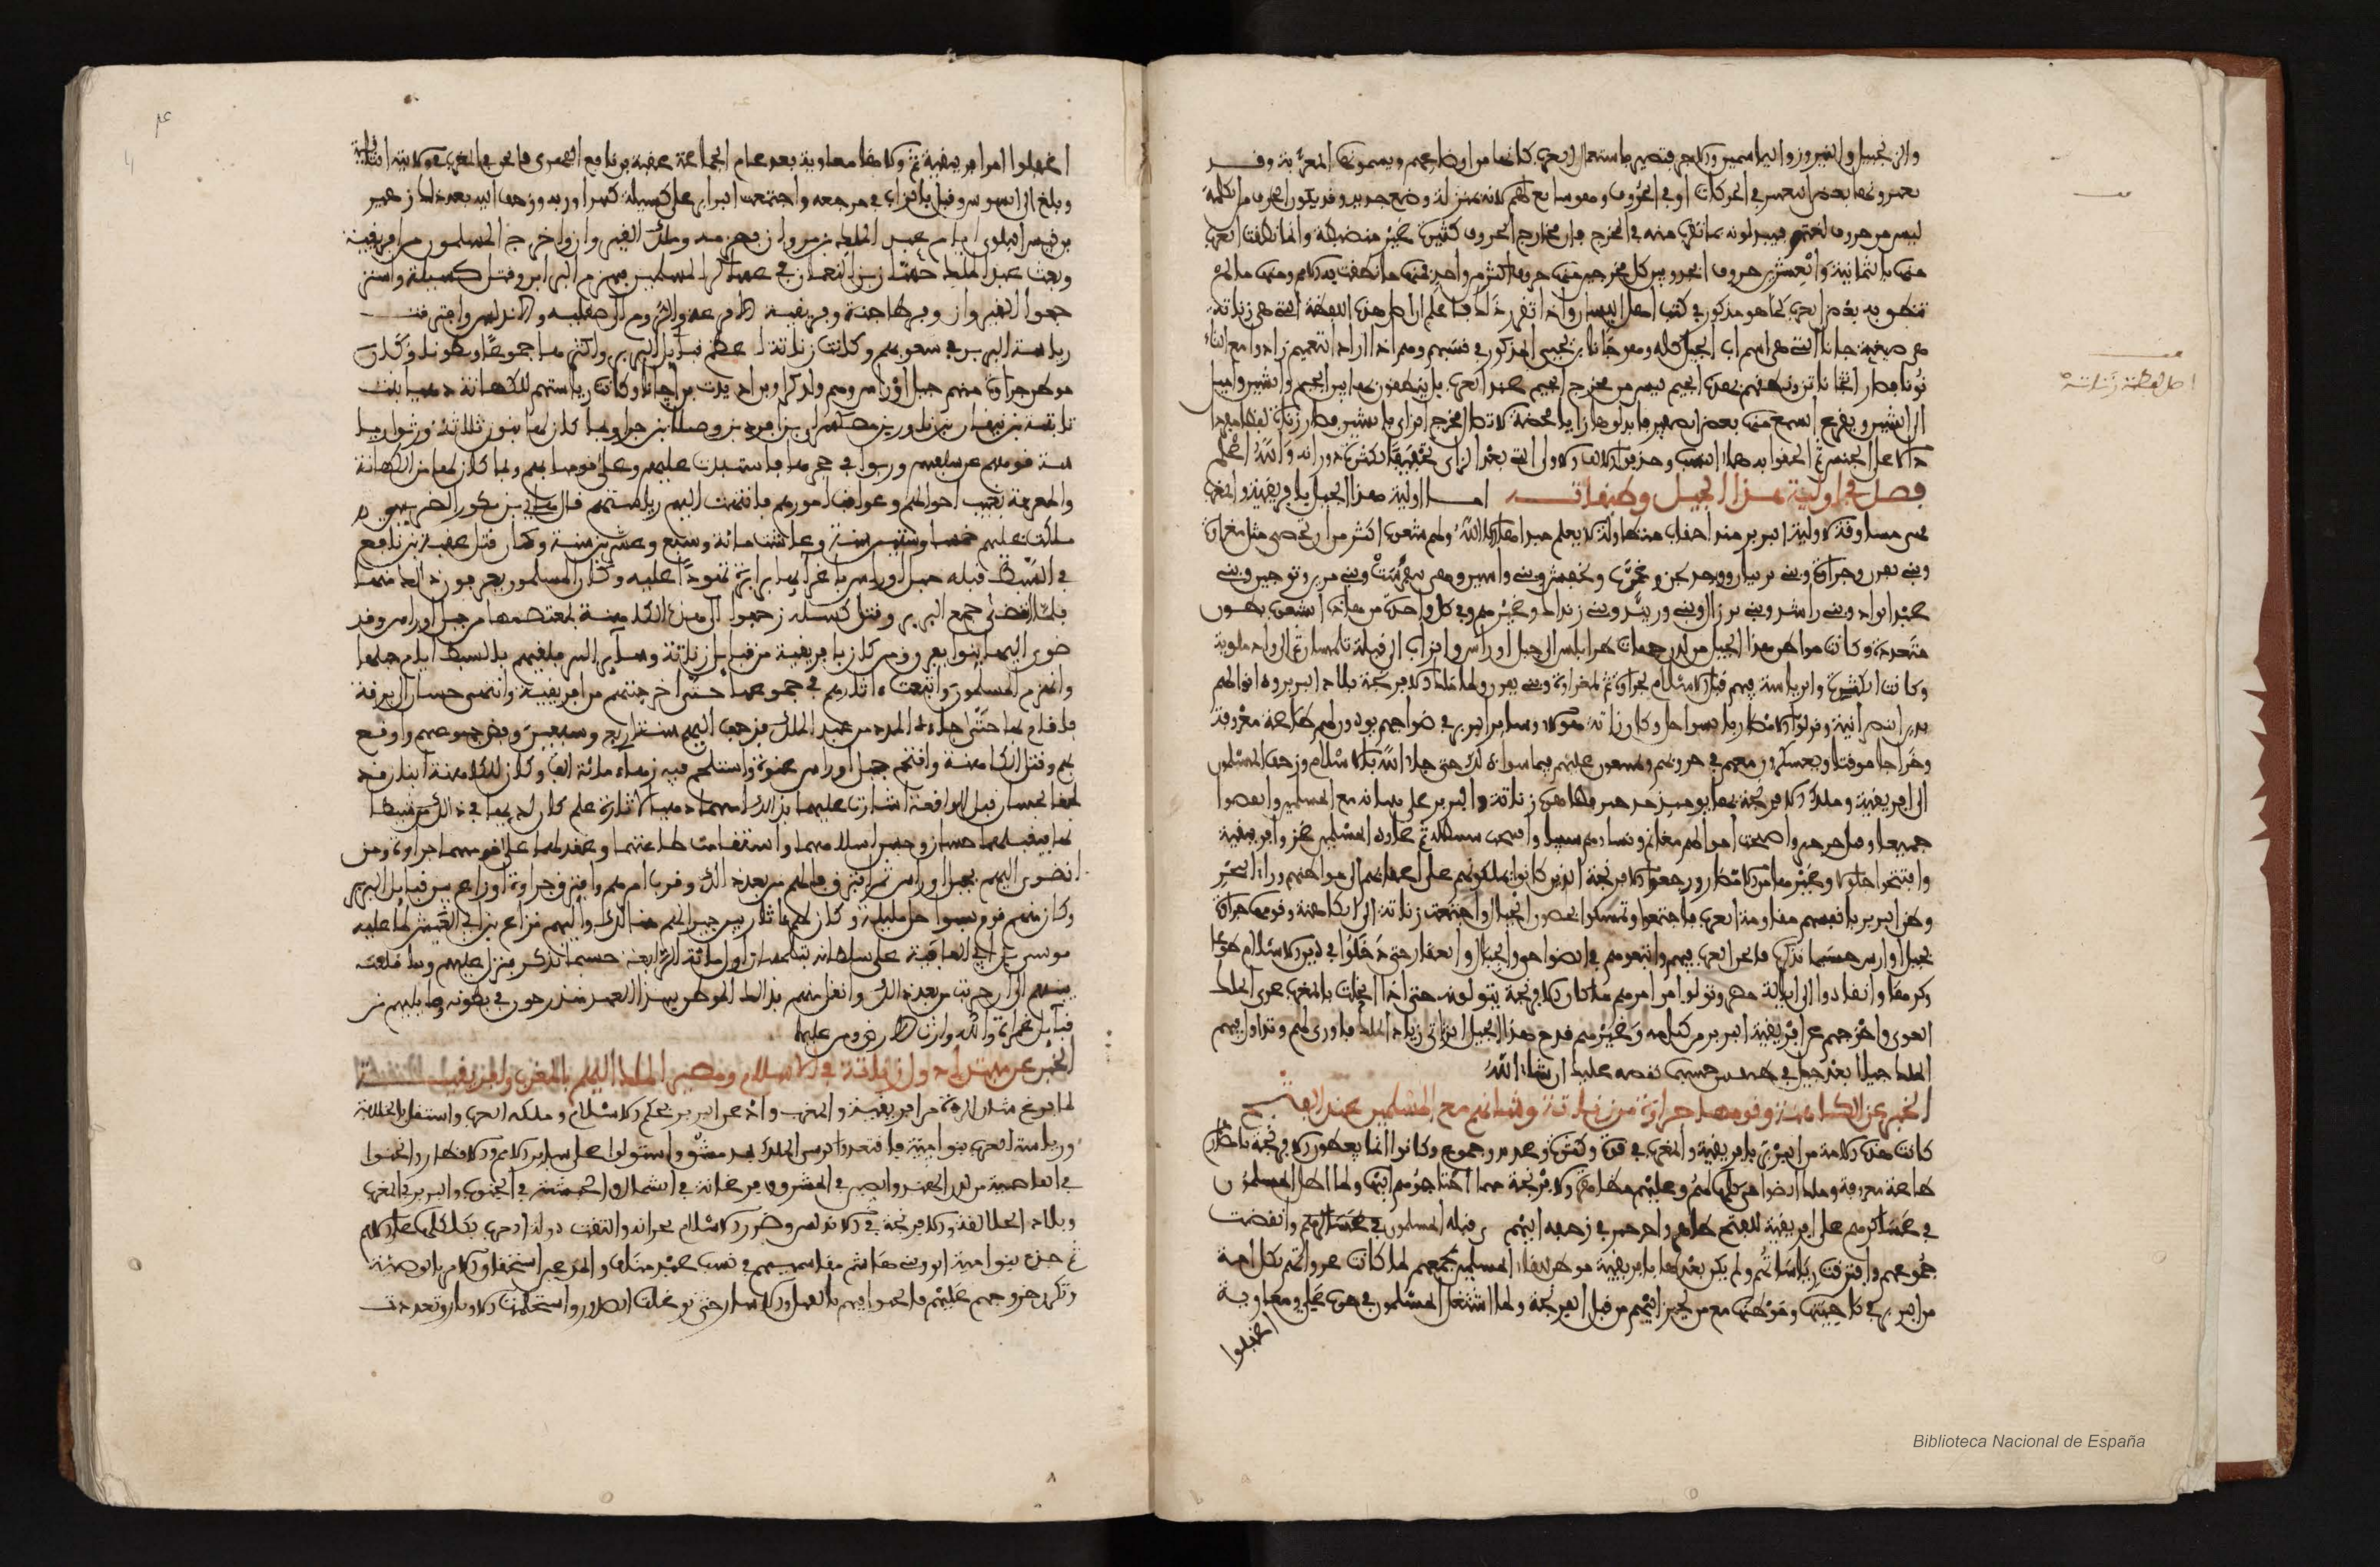 والزنجبيل والنيروز والياسمين والآجر فتصير باستعمال العرب كأنها من أوضاعهم ويسمونها المعربة وقد
يغيرونها بعض التغيير في الحركات أو في الحروف وهو سائغ لهم لأنه بمنزلة وضع جديد وقد يكون الحرف من الكلمة
ليس من حروف لغتهم فيبدلونه بما يقرب منه في المخرج فإن مخارج الحروف كثيرة غير منضبطة وإنما نطقت العرب
منها بالثمانية والعشرين حروف أبجد وبين كل مخرجين منها حروف أكثر من واحد فمنها ما نطقت به الأمم ومنها ما لم
تنطق به بعض العرب كما هو مذكور في كتب أهل اللسان وإذا تقرر ذلك فاعلم أن أصل هذه اللفظة التي هي زناتة
من صيغة جانا التي هي اسم أب الجيل كله وهو جانا بن يحيى المذكور في نسبهم وهم إذا أرادوا التعميم زادوا مع التاء
نونا فصار جاناتن ونطقهم بهذه الجيم ليس من مخرج الجيم عند العرب بل ينطقون بها بين الجيم والشين وأميل
إلى الشين ويقرع السمع منها بعض الصفير فأبدلوها زايا محضة لاتصال مخرج الزاي بالشين فصارت زانات لفظا مفردا
دالا على الجنس ثم ألحقوا به هاء النسب وحذفوا الألف الأولى التي بعد الزاي تخفيفا لكثرة دورانه والله أعلم
أصل لفظة زناتة
فصل في أولية هذا الجيل وطبقاته أما أولية هذا الجيل بافريقية والمغرب
فهي مساوقة لأولية البربر منذ أحقاب متطاولة لا يعلم مبدأها إلا الله ولهم شعوب أكثر من أن تحصى مثل مغراوة
وبني يفرن وجراوة وبني يرنيان ووجديجن وغمرت ويجفش وواسين وبني تيغرست وبني مرين وتوجين وبني
عبد الواد وبني راشد وبني برزال وبني ورنيد وبني زنداك وغيرهم وفي كل واحد من هذه الشعوب بطون
متعددة وكانت مواطن هذا الجيل من لدن جهات طرابلس إلى جبل أوراس والزاب إلى قبلة تلمسان ثم إلى وادي ملوية
وكانت الكثرة والرياسة فيهم قبل الإسلام لجراوة ثم لمغراوة وبني يفرن ولما ملك الإفرنجة بلاد البربر وداخلوهم
بدين النصرانية ونزلوا الأمصار بالسواحل وكان زناتة هؤلاء وسائر البربر في ضواحيهم يؤدون لهم طاعة معروفة
وخراجا موقتا ويعسكرون معهم في حروبهم ويمتنعون عليهم فيما سوى ذلك حتى جاء الله بالإسلام وزحف المسلمون
إلى افريقية وملك الإفرنجة بها يومئذ جرجير فظاهره زناتة والبربر على شأنه مع المسلمين وانفضوا
جميعا وقتل جرجير وأصبحت أموالهم مغانم ونساؤهم سبيا وافتتحت سبيطلة ثم عاود المسلمون غزو افريقية
وافتتحوا جلولا وغيرها من الأمصار ورجعوا الإفرنجة الذين كانوا يملكونهم على أعقابهم إلى مواطنهم وراء البحر
وظن البربر بأنفسهم مقاومة العرب فاجتمعوا وتمسكوا بحصون الجبال واجتمعت زناتة إلى الكاهنة وقومها جراوة
بجبل أوراس حسبما نذكره فأثخن العرب فيهم واتبعوهم في الضواحي والجبال والقفار حتى دخلوا في دين الإسلام طوعا
وكرها وانقادوا إلى إيالة مصر وتولوا من أمرهم ما كان الإفرنجة يتولونه حتى إذا انحلت بالمغرب عرى الملك
العربي وأخرجهم عن افريقية البربر من كتامة وغيرهم قدح هذا الجيل الزناتي زناد الملك فأورى لهم وتداول فيهم
الملك جيلا بعد جيل في طبقتين حسبما نقصه عليك إن شاء الله
الخبر عن الكاهنة وقومها جراوة من زناتة وشأنهم مع المسلمين عند الفتح
كانت هذه الأمة من البربر بافريقية والمغرب في قوة وكثرة وعديد وجموع وكانوا يعطون الإفرنجة بأمصارهم
طاعة معروفة وملك الضواحي كلها لهم وعليهم مظاهرة الإفرنجة مهما احتاجوهم إليها ولما أطل المسلمون
في عساكرهم على افريقية للفتح ظاهروا جرجير في زحفه إليهم حتى قتله المسلمون وانفضت
جموعهم وافترقت رياستهم ولم يكن بعدها بافريقية موطن للقاء المسلمين بجمعهم لما كانت غزواتهم لكل أمة
من البربر في ناحيتها وموطنها مع من تحيز إليهم من فل الإفرنجة ولما اشتغل المسلمون في حرب علي ومعاوية
أغفلوا
أغفلوا أمر افريقية ثم ولاها معاوية بعد عام الجماعة عقبة بن نافع الفهري فأثخن في المغرب في ولايته الثانية
وبلغ إلى السوس وقتل بالزاب في مرجعه واجتمعت البرابر على كسيلة كبير أوربة وزحف إليه بعد ذلك زهير
بن قيس البلوي أيام عبد الملك بن مروان فهزمه وملك القيروان وأخرج المسلمون من افريقية
وبعث عبد الملك حسان بن النعمان في عساكر المسلمين فهزم البرابر وقتل كسيلة واسترجعوا
القيروان وقرطاجنة وافريقية وفر الإفرنجة والروم إلى صقلية والأندلس وافترقت
رياسة البربر في شعوبهم وكانت زناتة أعظم قبائل البربر وأكثرها جموعا وبطونا وكان
موطن جراوة منهم جبل أوراس وهم ولد كراو بن الديرت بن جانا وكانت رياستهم للكاهنة دهيا بنت
تابتة بن نيقان بن باورا بن مصكسري بن أفرد بن وصيلا بن جراو وكان لها بنون ثلاثة ورثوا رياسة
قومهم عن سلفهم وربوا في حجرها فاستبدت عليهم وعلى قومها بهم وبما كان لها من الكهانة
والمعرفة بغيب أحوالهم وعواقب أمورهم فانتهت إليهم رياستهم قال هاني بن بكور الضريسي
ملكت عليهم خمسا وستين سنة وعاشت مائة وسبع وعشرين سنة وكان قتل عقبة بن نافع
في البسيط قبلة جبل أوراس بإغرائها برابرة تهودا عليه وكان المسلمون يعرفون ذلك منها
فلما انقضى جمع البربر وقتل كسيلة زحفوا إلى هذه الكاهنة بمعتصمها من جبل أوراس وقد
ضوى إليها بنو يفرن ومن كان بافريقية من قبائل زناتة وسائر البتر فلقيهم بالبسيط أمام جبلها
وانهزم المسلمون واتبعت آثارهم في جموعها حتى أخرجتهم من افريقية وانتهى حسان إلى برقة
فأقام بها حتى جاءه المدد من عبد الملك فزحف إليهم سنة أربع وسبعين وفض جموعهم وأوقع
بهم وقتل الكاهنة واقتحم جبل أوراس عنوة واستلحم فيه زهاء مائة ألف وكان للكاهنة ابنان قد
لحقا بحسان قبل الواقعة أشارت عليهما بذلك أمهما دهيا لإثارة علم كان لديها في ذلك من شيطانها
فتقبلهما حسان وحسن إسلامهما واستقامت طاعتهما وعقد لهما على قومهما جراوة ومن
انضوى إليهم بجبل أوراس ثم افترق فلهم من بعد ذلك وانقرض أمرهم وافترق جراوة أوزاعا بين قبائل البربر
وكان منهم قوم بسواحل مليلة وكان لهم آثار بين جيرانهم هنالك وإليهم نزع ابن أبي العيش لما غلبه
موسى بن أبي العافية على سلطانه بتلمسان أول المائة الرابعة حسبما نذكره فنزل عليهم وبنى القلعة
بينهم إلى أن خربت من بعد ذلك والفل منهم بذلك الموطن لهذا العهد مندرجون في بطوية ومن إليهم من
قبائل غمارة والله وارث الأرض ومن عليها
الخبر عن مبتدإ دول زناتة في الإسلام ومصير الملك إليهم بالمغرب وافريقية
لما فرغ شأن الردة من افريقية والمغرب وأذعن البربر لحكم الإسلام وملكة العرب واستقل بالخلافة
ورياسة العرب بنو أمية فاقتعدوا كرسي الملك بدمشق واستولوا على سائر الأمم والأقطار وأثخنوا
في القاصية من لدن الهند والصين في المشرق وفرغانة في الشمال والحبشة في الجنوب والبربر في المغرب
وبلاد الجلالقة والإفرنجة في الأندلس وضرب الإسلام بجرانه وألقت دولة العرب بكلكلها على الأمم
ثم جدع بنو أمية أنوف بني هاشم مقاسميهم في نسب عبد مناف والمدعين استحقاق الأمر بالوصية
وتكرر خروجهم عليهم فأثخنوا فيهم بالقتل والإسار حتى توغلت الصدور واستحكمت الأوتار وتعددت